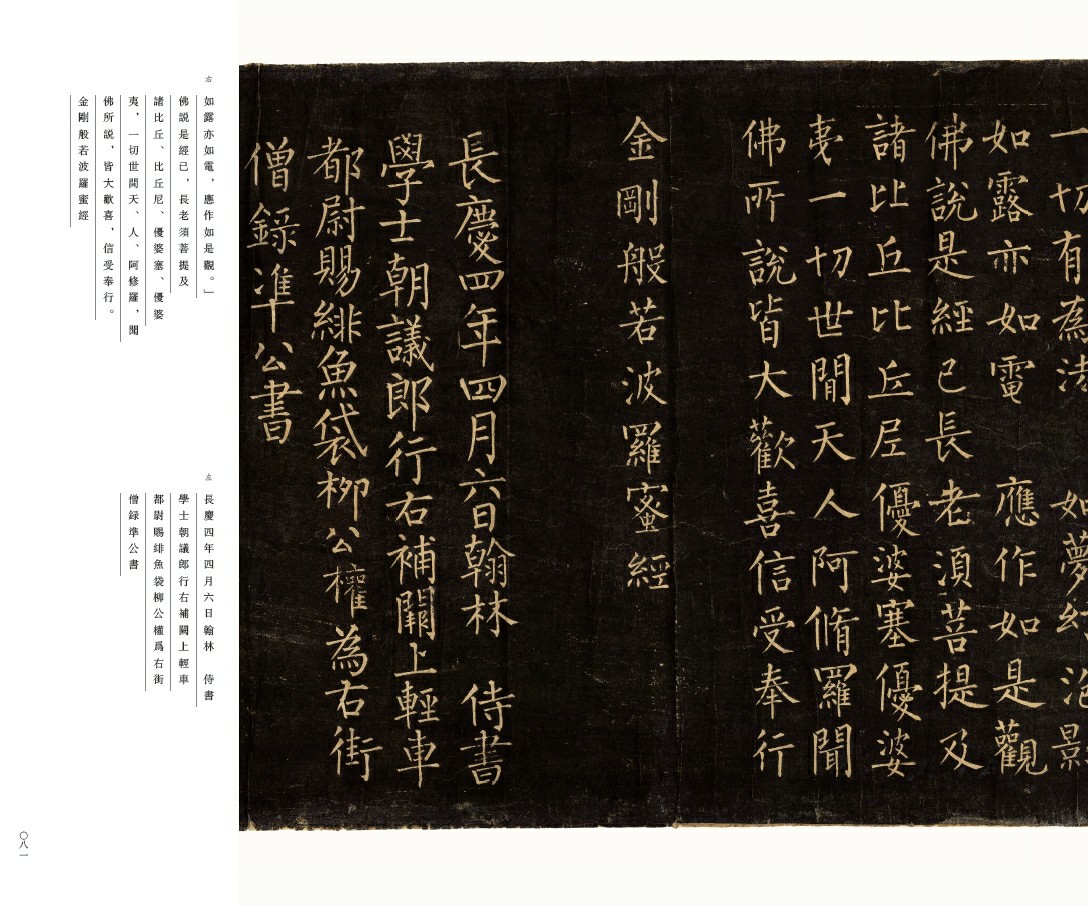 一切有為法 如夢幻泡影
如露亦如電 應作如是觀
佛説是經已長老須菩提及
諸比丘比丘尼優婆塞優婆
夷一切世間天人阿脩羅聞
佛所説皆大歡喜信受奉行
金剛般若波羅蜜經
長慶四年四月六日翰林 侍書
學士朝議郎行右補闕上輕車
都尉賜緋魚袋柳公權為右街
僧錄準公書
右
如露亦如電，應作如是觀。」
佛説是經已，長老須菩提及
諸比丘、比丘尼、優婆塞、優婆
夷，一切世間天、人、阿修羅，聞
佛所説，皆大歡喜，信受奉行。
金剛般若波羅蜜經
左
長慶四年四月六日翰林 侍書
學士朝議郎行右補闕上輕車
都尉賜緋魚袋柳公權爲右街
僧録準公書
〇八一